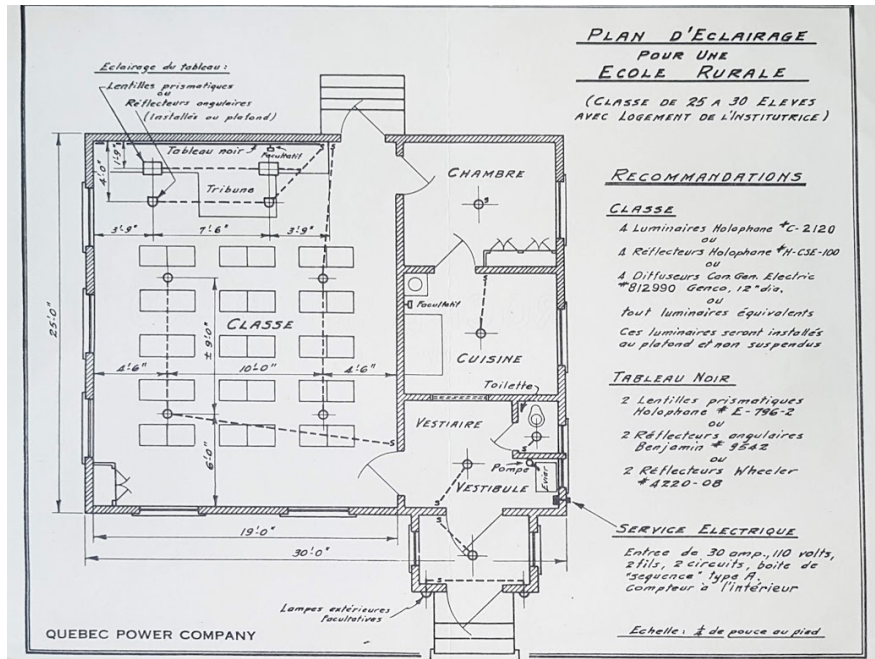 PLAN D'ECLAIRAGE
POUR UNE
ECOLE RURALE
(CLASSE DE 25 A 30 ELEVES
AVEC LOGEMENT DE L'INSTITUTRICE)
RECOMMANDATIONS
CLASSE
4 Luminaires Holophane #C-2120
ou
4 Réflecteurs Holophane #H-CSE-100
ou
4 Diffuseurs Can. Gen. Electric
#812990 Genco, 12" dia.
ou
tout luminaires équivalents
Ces luminaires seront installés
au plafond et non suspendus
TABLEAU NOIR
2 Lentilles prismatiques
Holophane # E-796-2
ou
2 Réflecteurs angulaires
Benjamin # 9542
ou
2 Réflecteurs Wheeler
#4220-08
SERVICE ELECTRIQUE
Entrée de 30 amp., 110 volts,
2 fils, 2 circuits, boîte de
"sequence" type A.
Compteur à l'intérieur
Echelle: ¼ de pouce au pied
Eclairage du tableau:
Lentilles prismatiques
ou
Réflecteurs angulaires
(Installés au plafond)
Tableau noir
Facultatif
S
S
1'-9"
4'-0"
Tribune
3'-9"
7'-6"
3'-9"
CHAMBRE
S
25'-0"
CLASSE
± 9'-0"
4'-6"
10'-0"
4'-6"
6'-0"
S
S
Facultatif
CUISINE
Toilette
VESTIAIRE
S
Pompe
Evier
VESTIBULE
S
S
S
19'-0"
30'-0"
Lampes extérieures
facultatives
QUEBEC POWER COMPANY